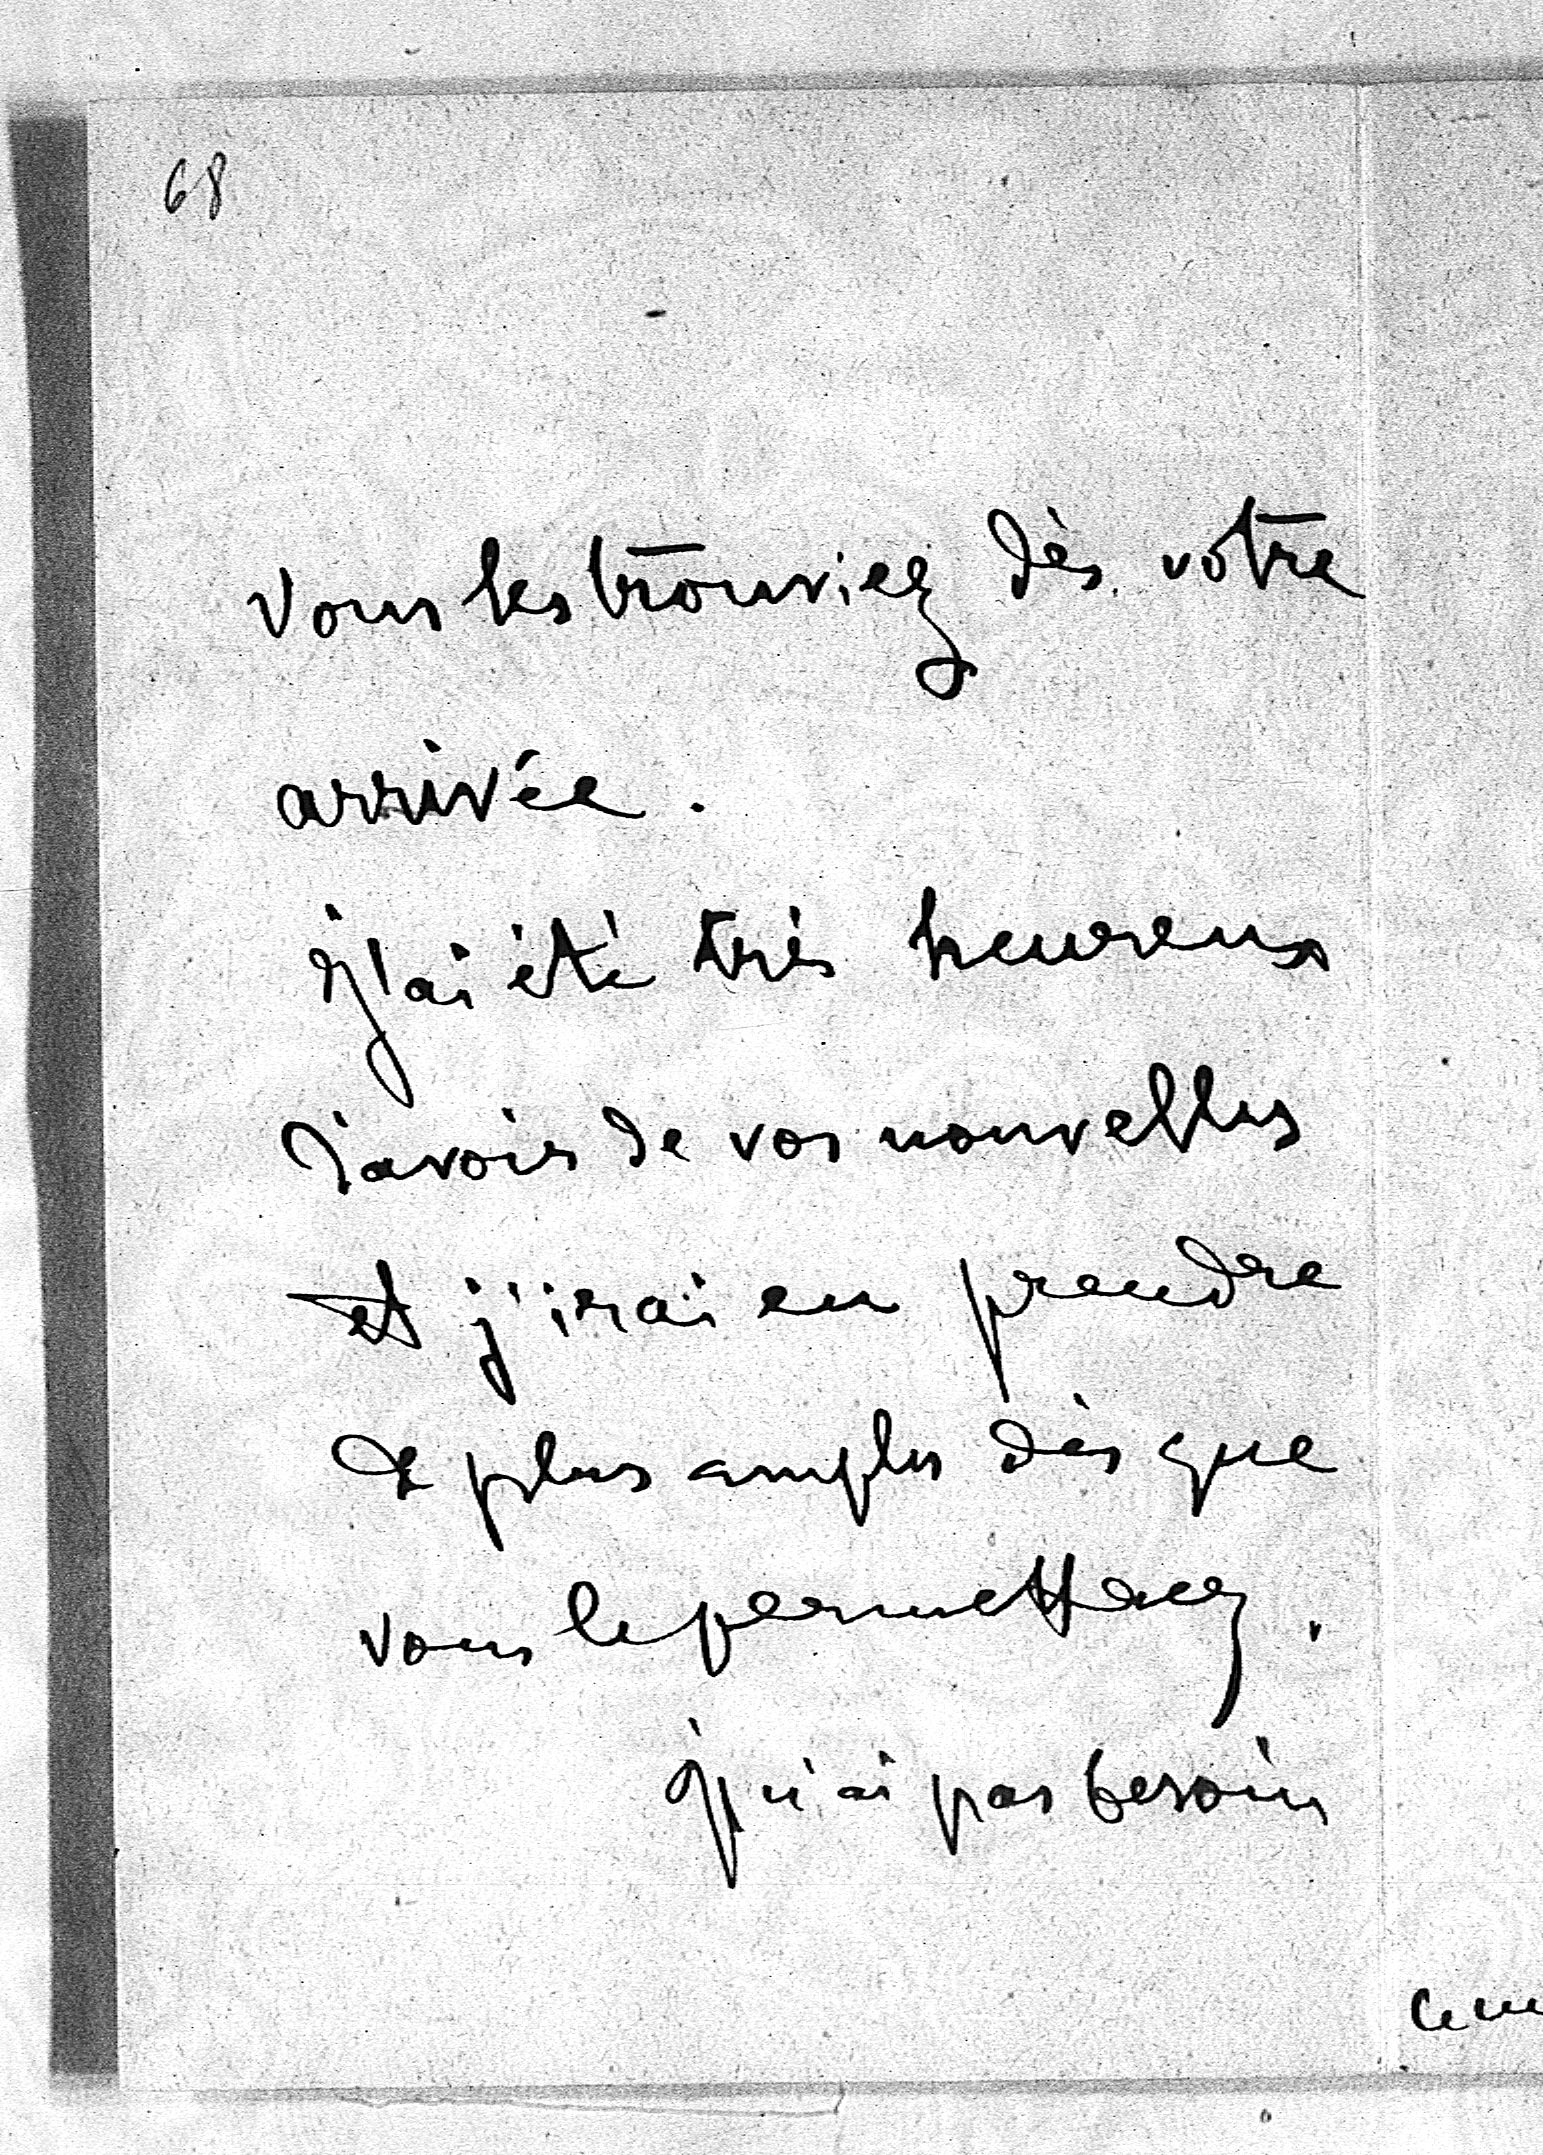 68
vous les trouviez dès votre
arrivée.
j'ai été très heureux
d'avoir de vos nouvelles
et j'irai en prendre
de plus amples dès que
vous le permettrez.
je n'ai pas besoin